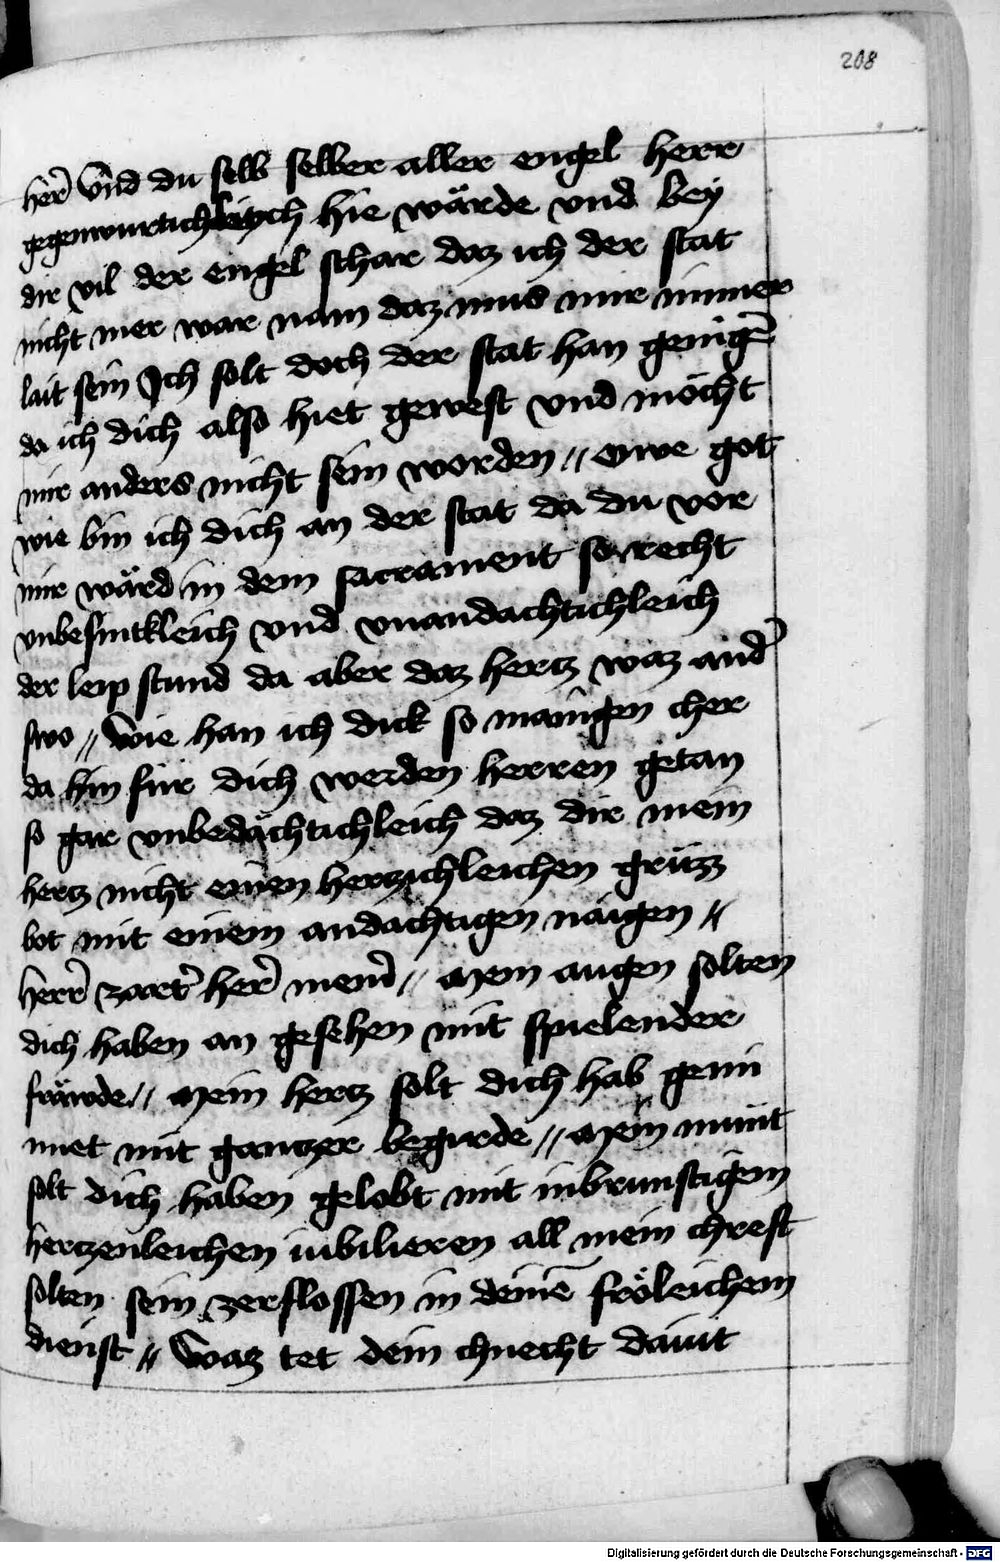 208
her̄ vnd du selb selber aller engel herr
gegenwurtichleych hie wärde vnd bey
dir vil der engel schar daz ich der stat
nicht mer war nam daz mus mir immer
lait sein Ich solt doch der stat han genigē
da ich dich also hiet gewest vnd möcht
mir anders nicht sein worden // owe got
wie bin ich dich an der stat da du vor
mir wärd in dem sacrament so recht
vnbesintkleich vnd vnandachtichleich
der leip stund da aber daz hertz waz and̄
swo // Wie han ich dick so manigen cher
da hin für dich werden herren getan
so gar vnbedächtichleich daz dir mein
hertz nicht einen hertzichleichen grüzz
bot mit einem andachtigen naigen //
herr̄ zart̄ her̄ mein̄ // Mein augen solten
dich haben an gesehen mit spielender
fräwde // Mein hertz solt dich hab gemi
nnet mit gantzer begirde // Mein munt
solt dich haben gelobt mit inbrunstigem
hertzenleichen iubilieren all mein chreft
solten sein zerflossen in deinē fröleichem
dienst // Waz tet dein chnecht dauit
Digitalisierung gefördert durch die Deutsche Forschungsgemeinschaft - DFG